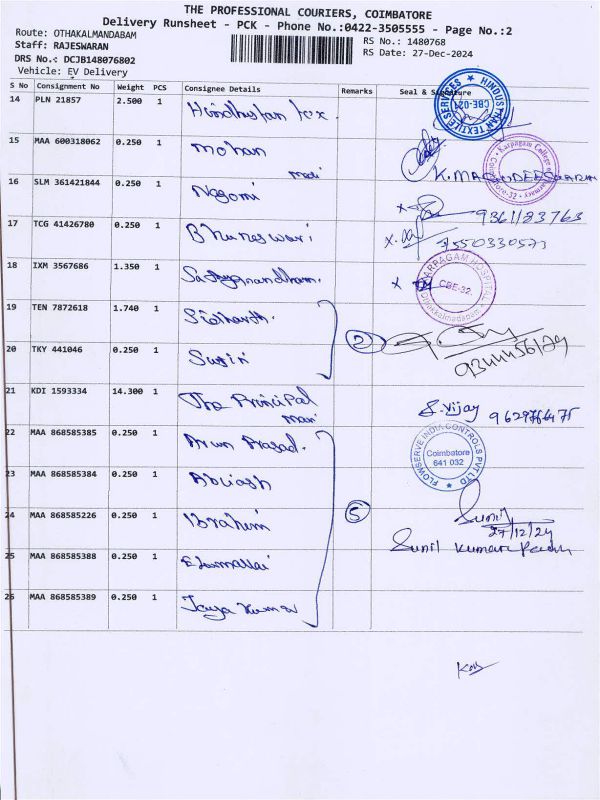 THE PROFESSIONAL COURIERS, COIMBATORE
Delivery Runsheet - PCK - Phone No.:0422-3505555 - Page No.:2
Route: OTHAKALMANDABAM
RS No.: 1480768
Staff: RAJESWARAN
RS Date: 27-Dec-2024
DRS No.: DCJB148076802
Vehicle: EV Delivery
S No Consignment No Weight PCS Consignee Details Remarks Seal & Signature
14 PLN 21857 2.500 1 Hindhustan
HINDUSTHAN TEXTILE SERVICES CBE-021
15 MAA 600318062 0.250 1 Mohan
Karpagam College Pharmacy Coimbatore-32
16 SLM 361421844 0.250 1 Nagomi
9361183763
17 TCG 41426780 0.250 1 Bhuneswari
18 IXM 3567686 1.350 1
KARPAGAM HOSPITAL CBE-32 Othakkalmandapam
19 TEN 7872618 1.740 1 Sidharth.
20 TKY 441046 0.250 1
2
21 KDI 1593334 14.300 1 The Principal
S. Vijay
22 MAA 868585385 0.250 1 Arun Prasad.
FLOWSERVE INDIA CONTROLS PVT LTD Coimbatore 641 032
23 MAA 868585384 0.250 1 Abinash
24 MAA 868585226 0.250 1 Ibrahim
5
Sunil
27/12/24
25 MAA 868585388 0.250 1 Elumallai
Sunil Kumar
26 MAA 868585389 0.250 1 Jaya Kumar